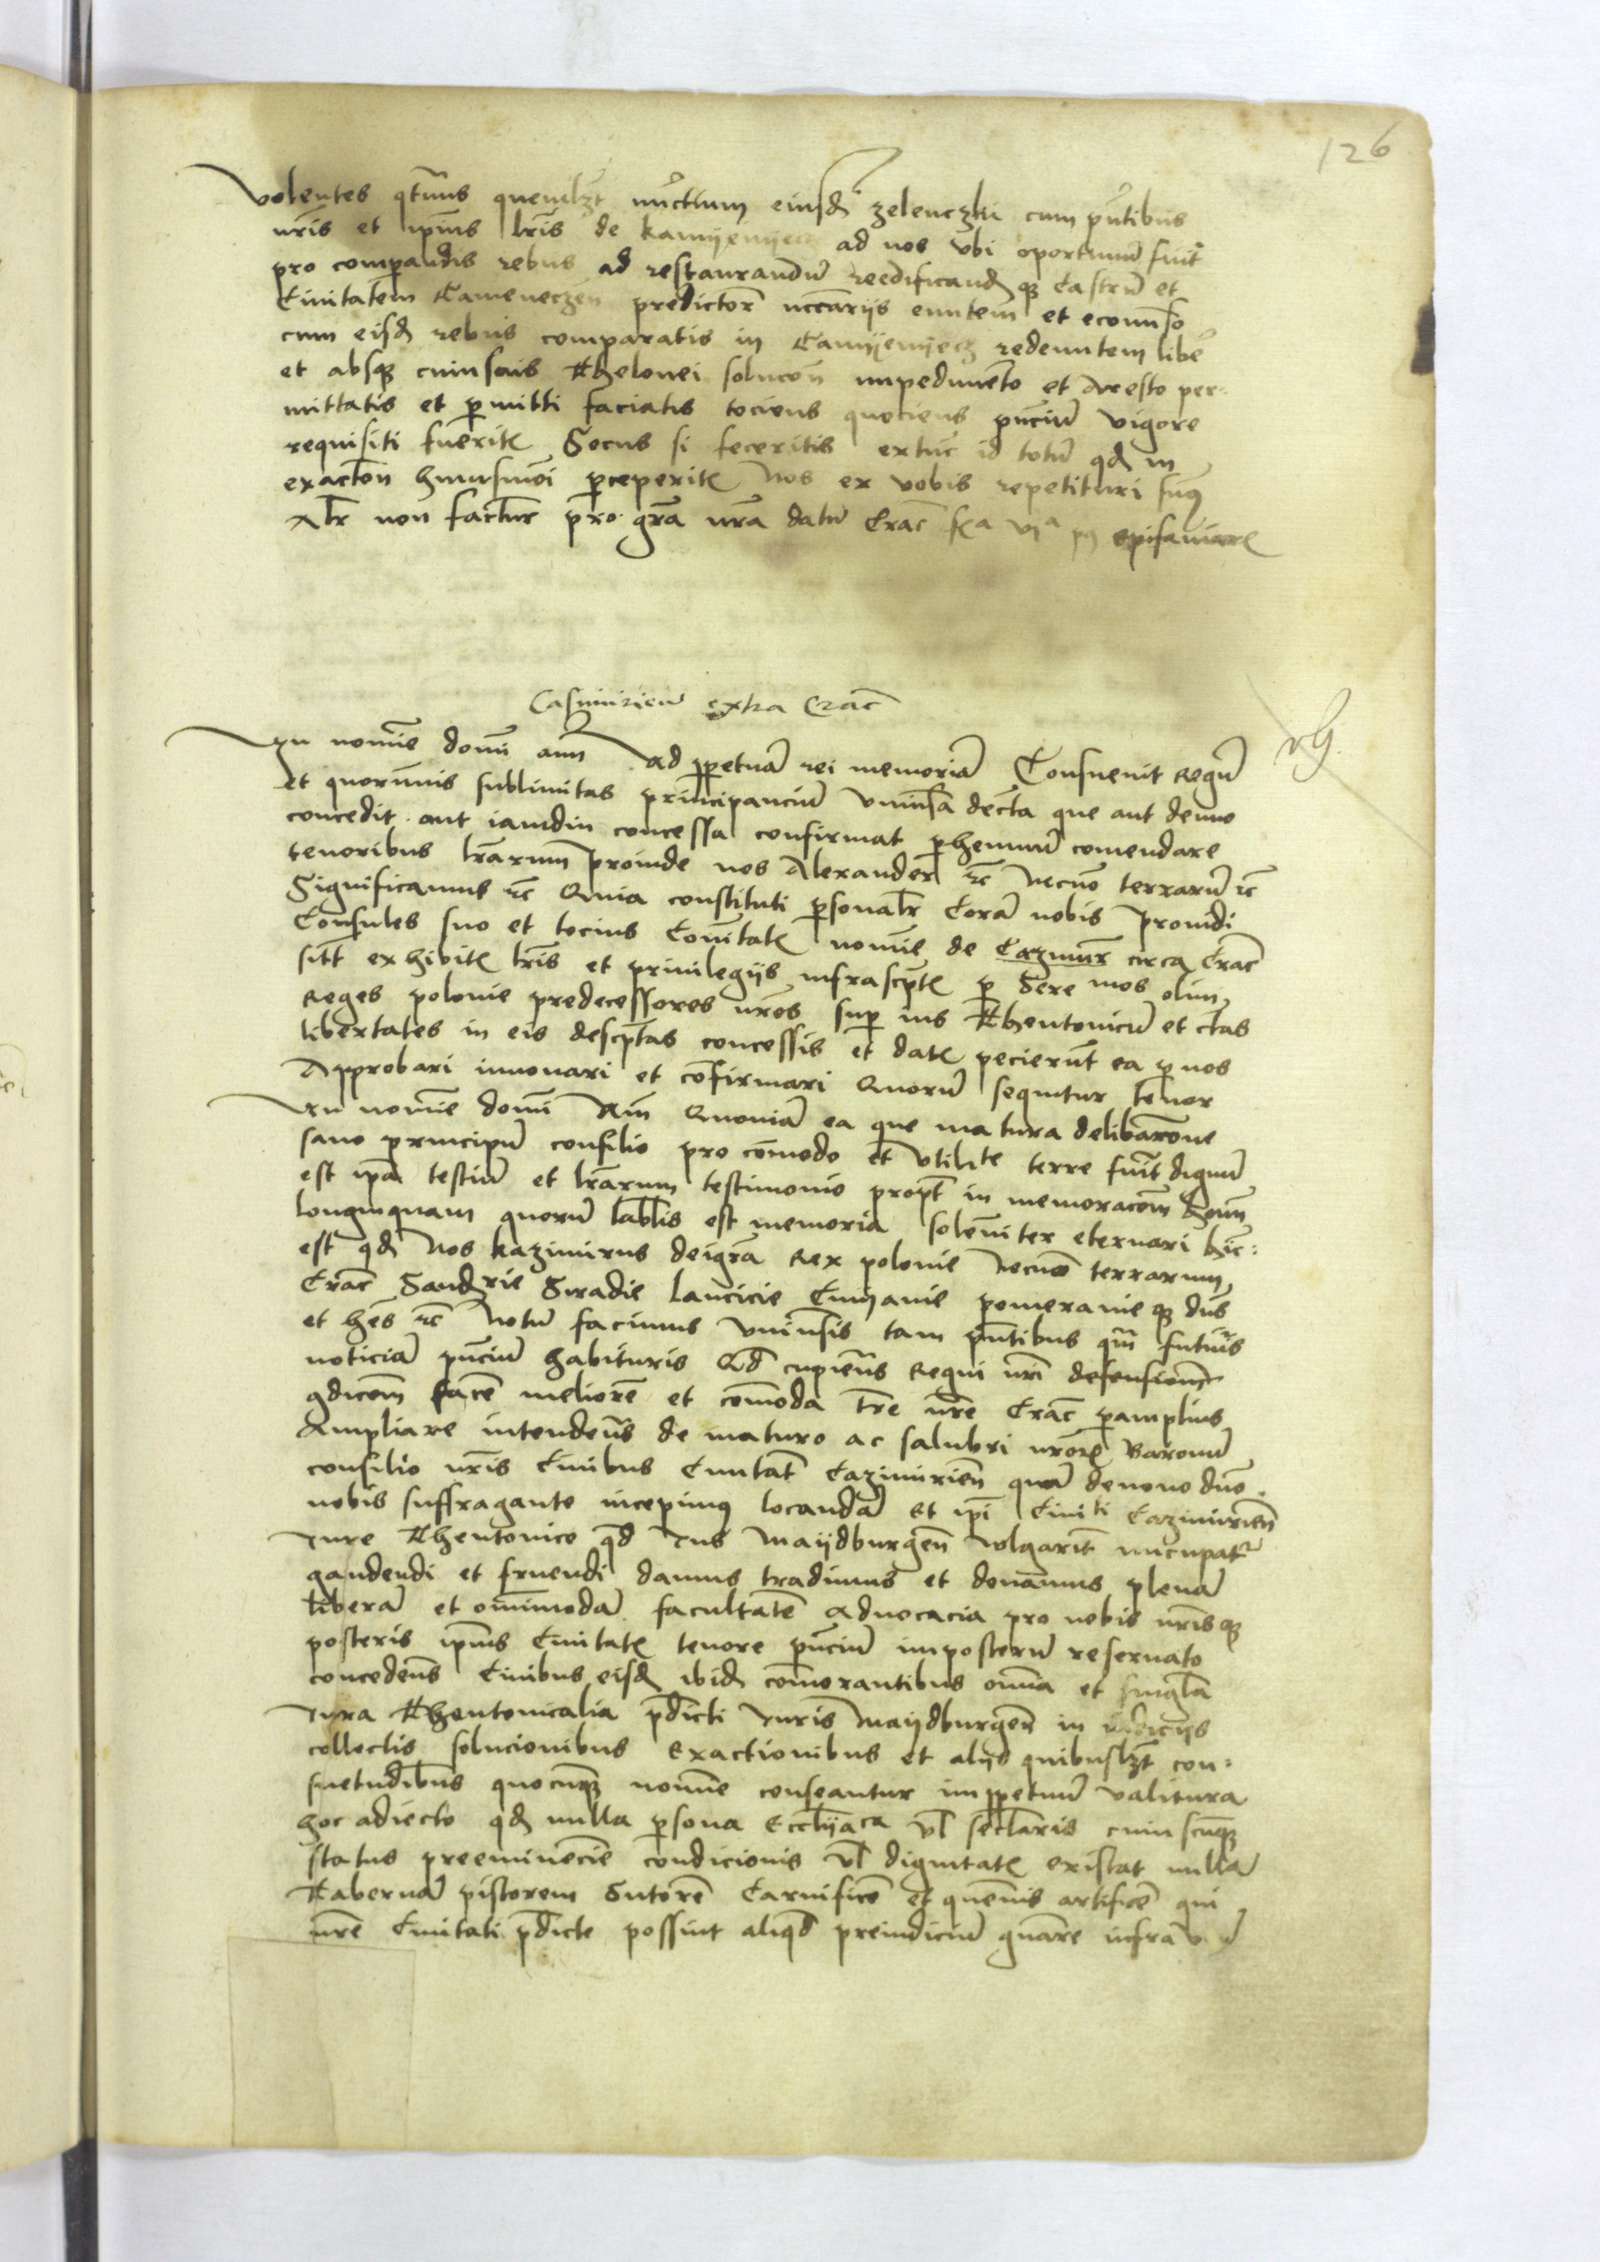 126
volentes qtenus quemlzt nuctium eiusd zelenczki cum pntibus
nris et ipius lris de kamyenyecz ad nos vbi oportunu fuit
pro comparandis rebus ad restaurandu reedificandq castru et
Ciuitatem Cameneczen predictor nccariis euntem et econuso
cum eisd rebus comparatis in Camyenyecz redeuntem libe
et absq cuiusuis Thelonei solucon impedimento et Aresto per
mittatis et pmitti faciatis tociens quociens pnciu vigore
requisiti fuerit Secus si feceritis extuc id totu qd in
exacton huiusmoi pceperit Nos ex vobis repetituri sum9
Alr non factur pro gra nra datu Crac fa via p9 epifaniar
Casimirien extra Crac
In nomie domi amen Ad ppetua rei memoria Consueuit Regu
et quorumuis sublimitas principanciu vniusa decta que aut denuo
concedit aut iamdiu concessa confirmat phennitu comendare
tenoribus lrarum proinde nos Alexander etc Necno terraru etc
Significamus etc Quia constituti psonalr Cora nobis prouidi
Consules suo et tocius Comitat nomie de Cazimir circa Crac
sitt exhibit lris et priuilegiis infrascpt p Sere mos olim
Reges polonie predecessores nros sup ius Theutonicu et ctas
libertates in eis descptas concessis et dat pecierut ea p nos
Approbari innouari et confirmari Quoru sequitur tenor
In nomie domi Am Quonia ea que matura delibaracone
sano principu consilio pro comodo et vtilite terre fiunt dignu
est ipa testiu et lrarum testimonio propt in memoracom hoim
longinquam quoru labilis est memoria solenniter eternari hic
est qd Nos kazimirus deigra Rex polonie Necno terrarum
Crac Sandrie Siradie lancicie Cuyauie pomeranieq dns
et hes etc Notu facimus vniusis tam pntibus qm futuris
noticia pnciu habituris Qd cupients Regni nri defensione
qdicom face meliore et comoda tre nre Crac pamplius
Ampliare intendents de maturo ac salubri nror Baronu
consilio nris Ciuibus Ciuitat Cazimirien qua denouo dno
nobis suffragante incepim9 locanda Et ipi Ciuiti Cazimirien
Iure Theutonico qd Ius Maydburgen wlgarit nucupatr
gaudendi et fruendi damus tradimus et donamus plena
libera et omimoda facultate Aduocacia pro nobis nrisq
posteris ipius Ciuitat tenore pnciu imposteru reseruato
concedents Ciuibus eisd ibid comorantibus omia et singla
Iura Theutonicalia pdicti Iuris Maydburgen in iudiciis
collectis solucionibus Exactionibus et aliis quibuslzt con
suetudibus quocunq nomie censeantur inppetuu valitura
hoc adiecto qd nulla psona Eccliiaca vl seclaris cuiuscunq
status preeminecie condicionis vl dignitat existat nulla
Taberna pistorem Sutore Carnifice et quenuis artifice qui
nre Ciuitati pdicte possint aliqd preiudiciu gnare infra